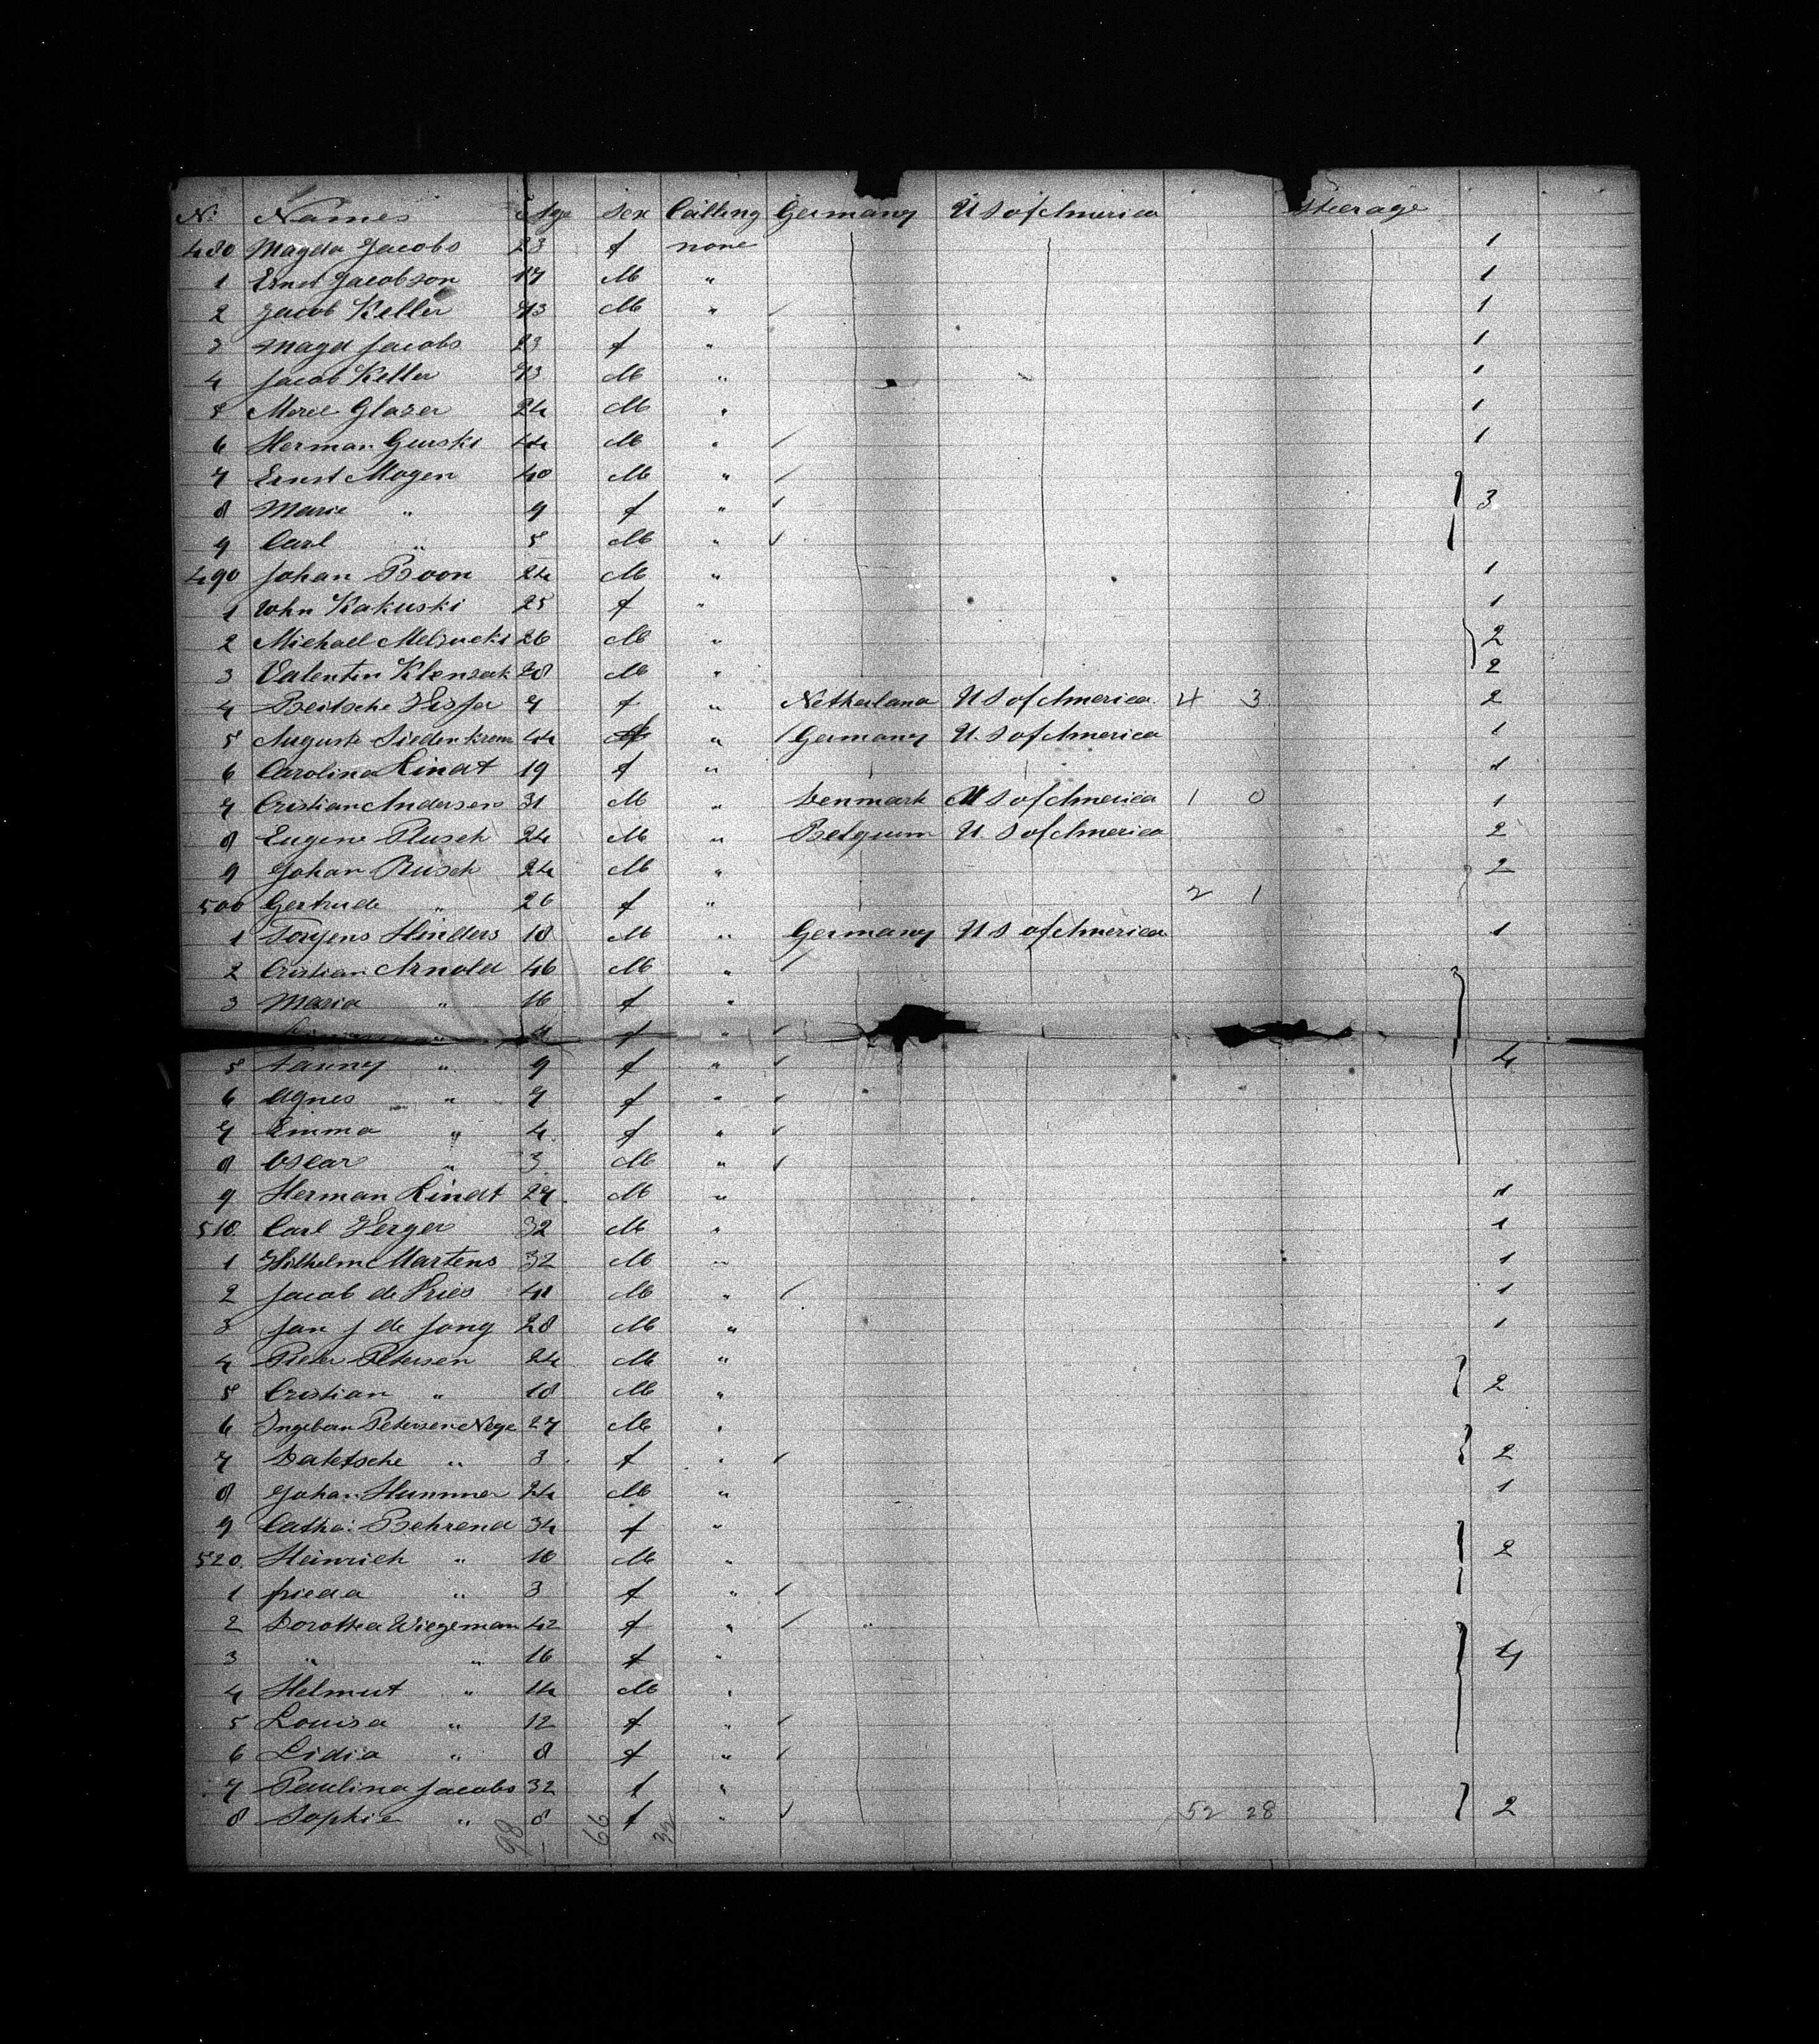 No Names Age Sex Calling Germany U S of America Steerage
480 Magda Jacobs 23 f none 1
1 Ernst Jacobson 17 M " 1
2 Jacob Keller 73 M " 1
3 Magd Jacobs 23 f " 1
4 Jacob Keller 73 M " 1
5 Glaser 24 M " 1
6 Herman Gurski 44 M " 1
7 Ernst Mogen 40 M "
8 Marie " 9 f " 3
9 Carl " 5 M "
490 Johan Boon 24 M " 1
1 John Kakuski 25 f " 1
2 Michael 26 M " 2
3 Valentin 28 M " 2
4 7 f " Netherland U S of America 4 3 2
5 Auguste 44 f " Germany U. S of America 1
6 Carolina Lindt 19 f " 1
7 Cristian Andersen 31 M " Denmark U S of America 1 0 1
8 Eugene Rusch 24 M " Belgium U. S of America 2
9 Johan Rusch 24 M " 2
500 Gertrude " 26 f " 2 1
1 Hinders 18 M " Germany U S of America 1
2 Cristian Arnold 46 M "
3 Maria " 16 f "
" f "
5 Fanny " 9 f " 4
6 Agnes " 7 f "
7 Emma " 4 f "
8 Oscar " 3 M "
9 Herman Lindt 27 M " 1
510. Carl Verger 32 M " 1
1 Wilhelm Martens 32 M " 1
2 Jacob de Vries 41 M " 1
3 Jan J de Jong 28 M " 1
4 Pieter Petersen 24 M "
5 Cristian " 18 M " 2
6 Petersen 27 M "
7 " 3 f " 2
8 Johan Hummer 24 M " 1
9 Catha: Behrend 34 f "
520. Heinrich " 10 M " 2
1 frieda " 3 f "
2 Dorothea Wiegeman 42 f " "
3 " " 16 f " 4
4 Helmut " 14 M "
5 Louisa " 12 f "
6 Lidia " 8 f "
7 Paulina Jacobs 32 f "
8 Sophie " 8 f " 52 28 2
98 66 32